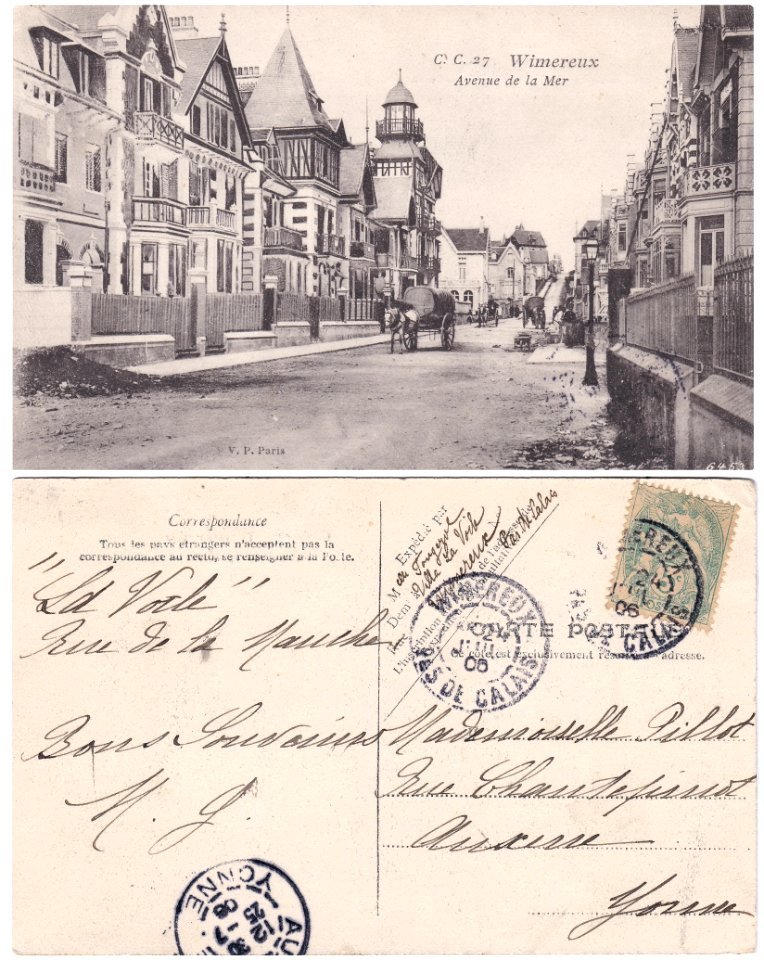 C. C. 27 Wimereux
Avenue de la Mer
V. P. Paris
Correspondance
Tous les pays étrangers n'acceptent pas la
correspondance au recto, se renseigner à la Poste.
"La Voile"
Rue de la Manche
Bons Souvenirs
M. G.
Expédié par
M
Villa La Voile
Wimereux
Pas de Calais
WIMEREUX
06
PAS DE CALAIS
WIMEREUX
06
PAS DE CALAIS
CARTE POSTALE
Ce côté est exclusivement réservé à l'adresse.
Mademoiselle Pillot
Rue Chantepinot
Auxerre
Yonne
YONNE